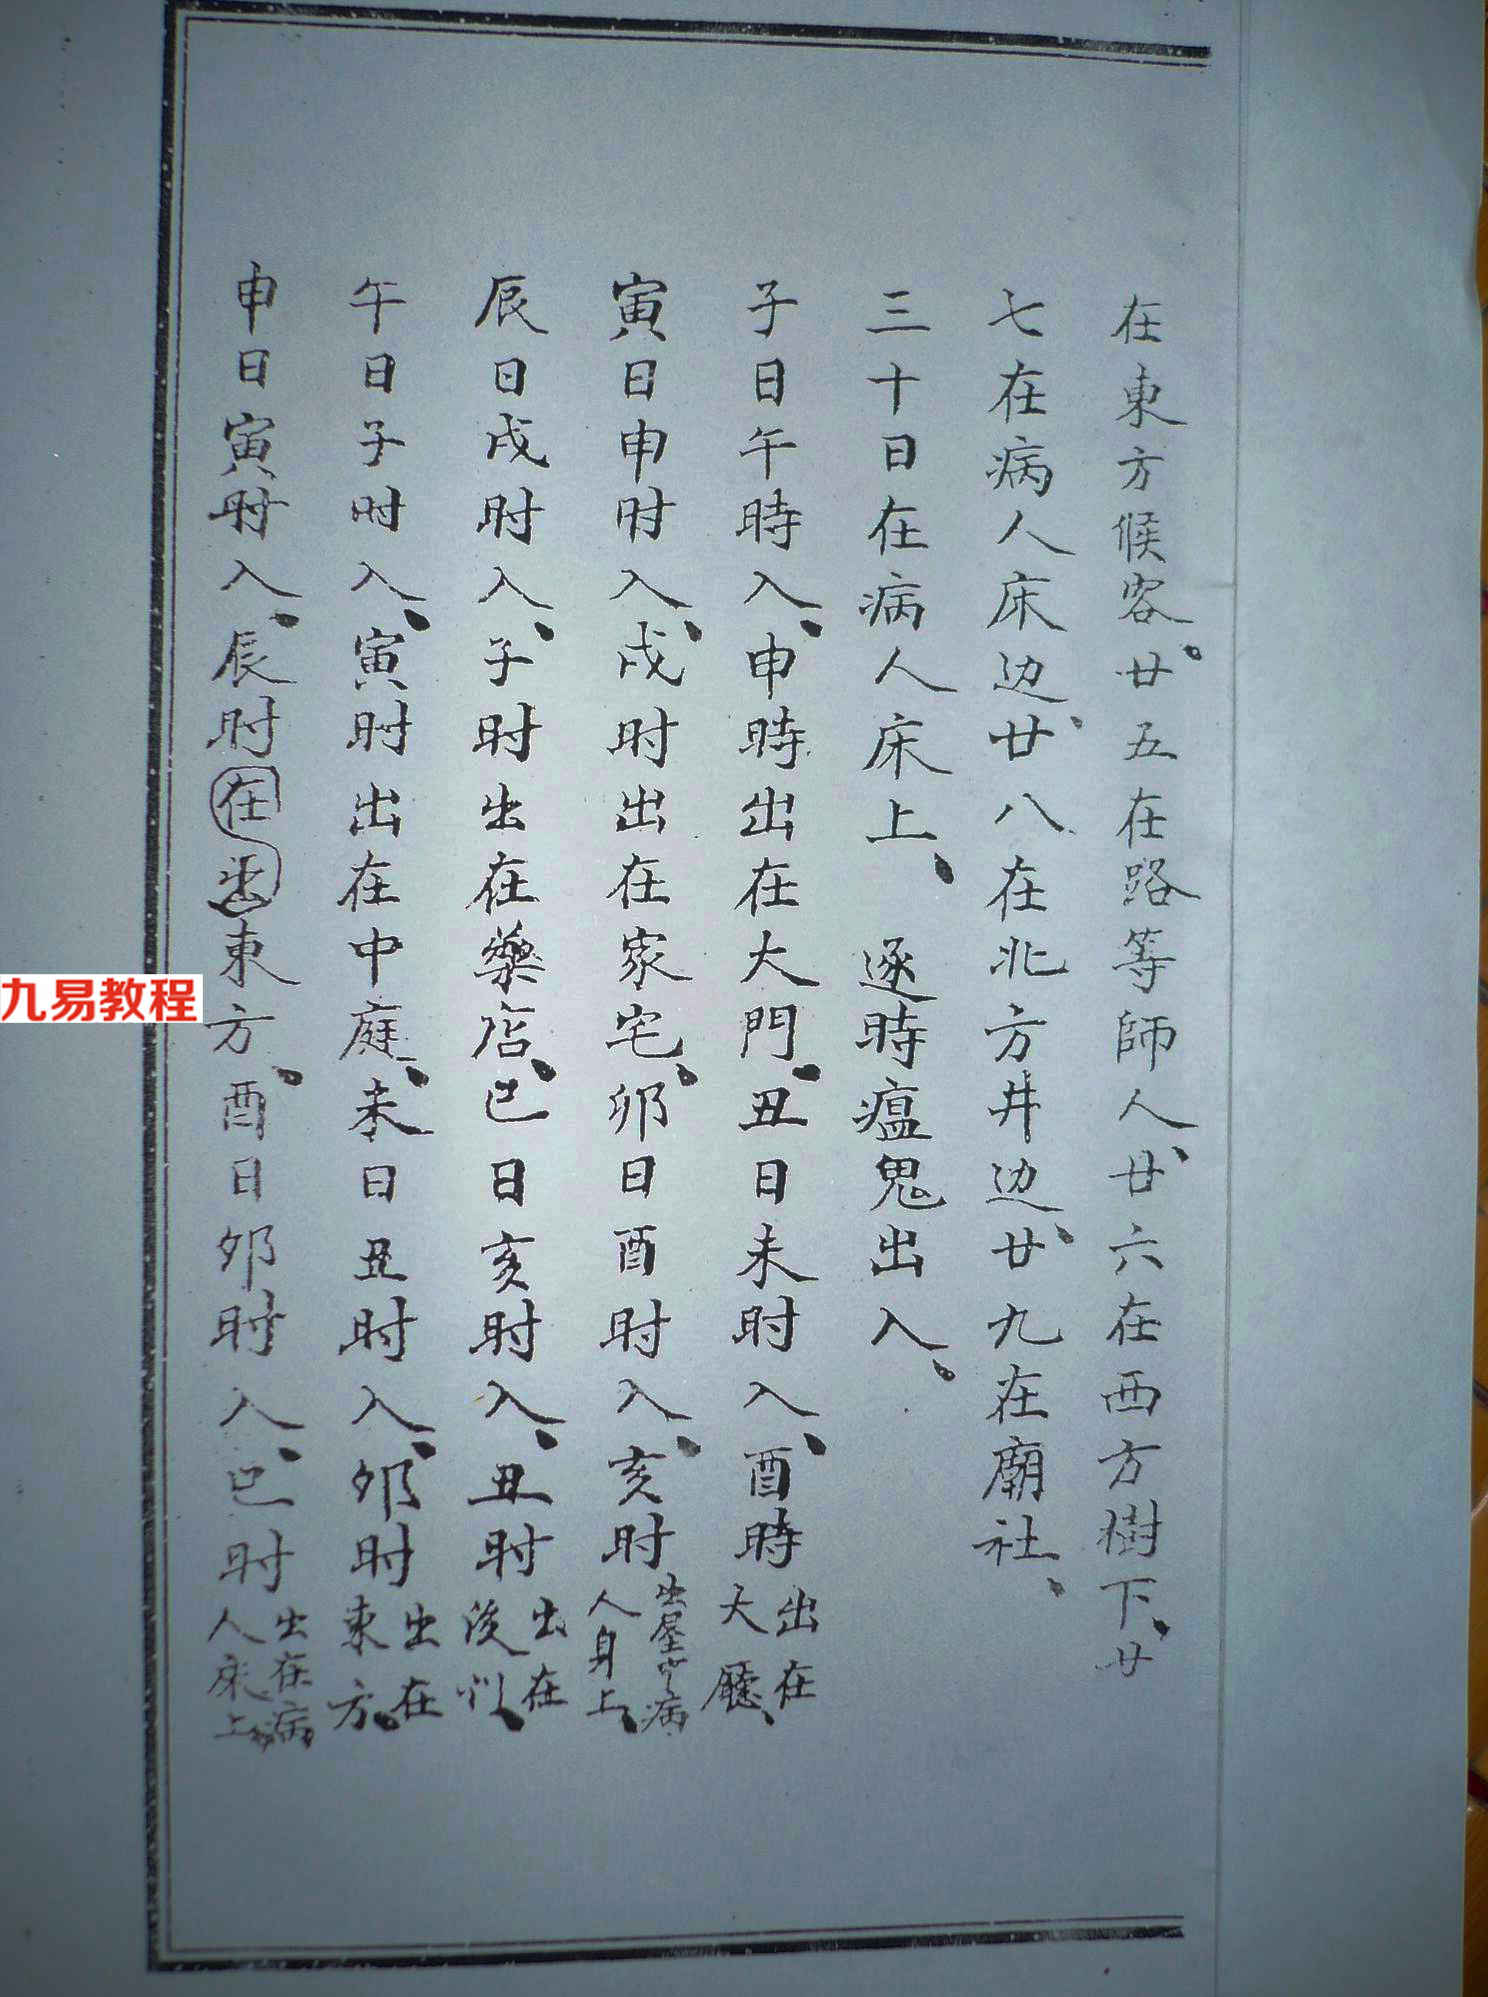 在東方候客。廿五在路等師人、廿六在西方樹下、廿
七在病人床边、廿八在北方井边、廿九在廟社、
三十日在病人床上、 逐時瘟鬼出入、
子日午時入、申時出在大門、丑日未时入、酉時出在大廳、
寅日申时入、戌时出在家宅、卯日酉时入、亥时出屋中病人身上、
辰日戌时入、子时出在藥店、巳日亥时入、丑时出在後
午日子时入、寅时出在中庭、未日丑时入、卯时出在東方、
申日寅时入、辰时在出東方、酉日卯时入、巳时出在病人床上
九易教程